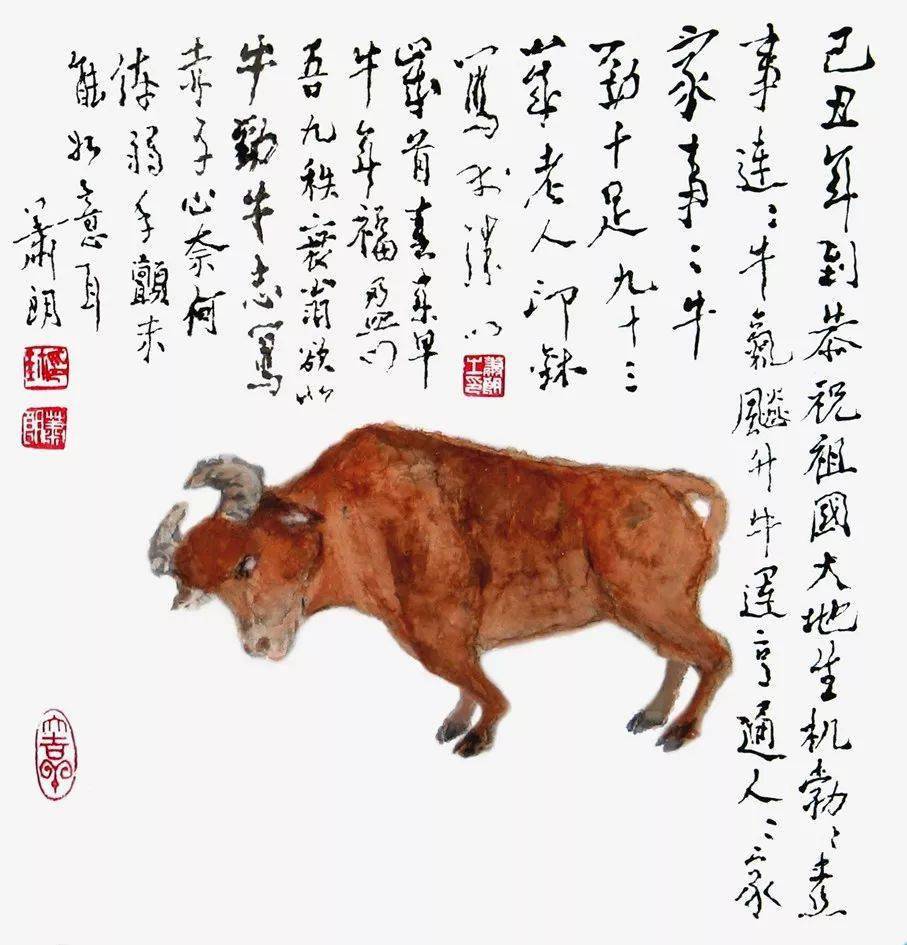 己丑年到恭祝祖國大地生机勃〻喜
事連〻牛氣飈升牛運亨通人〻家
家事〻牛
勁十足九十三
歲老人印鉢
寫於津门
歲首喜來早
牛年福盈门
吾九秩衰翁欲以
牛勤牛志寫
赤子心奈何
体弱手顫未
能如意耳
蕭朗
蕭朗